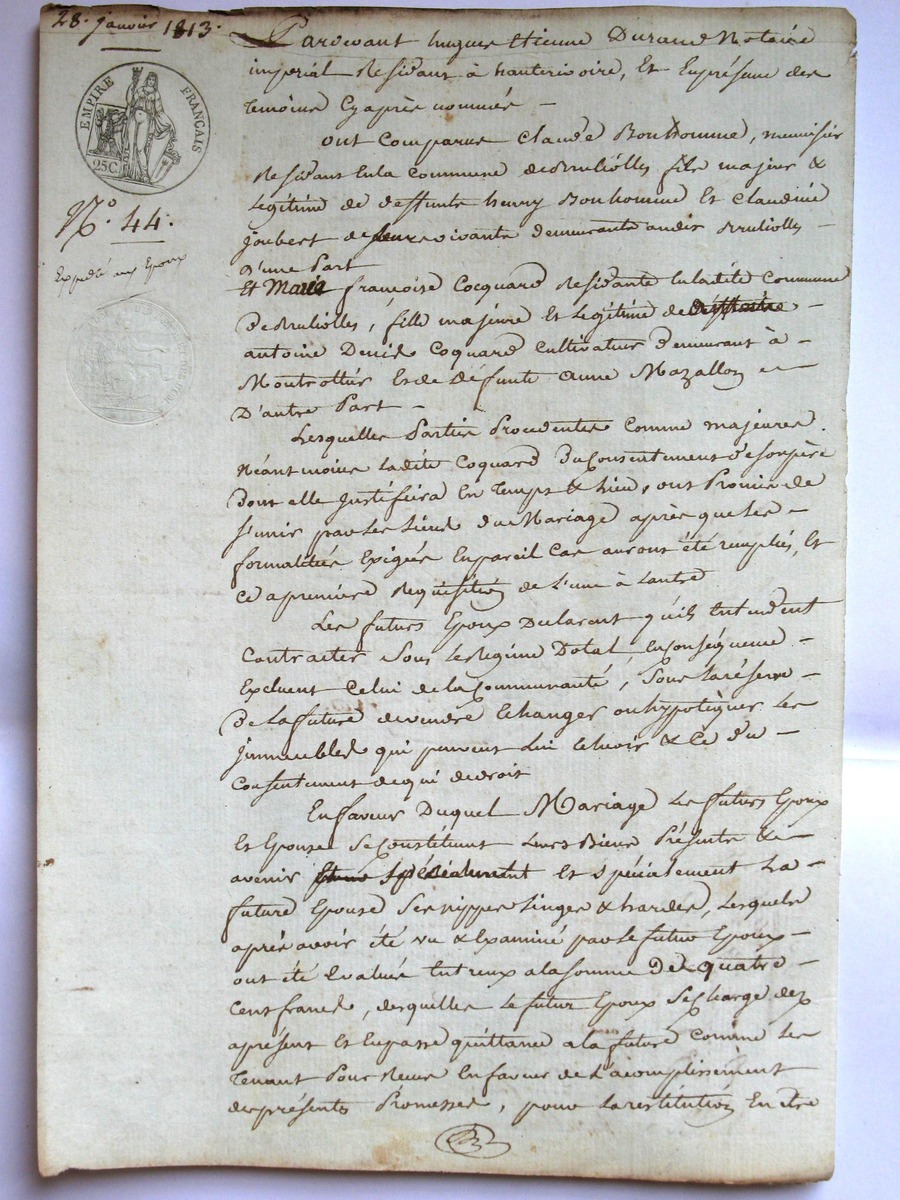 28. janvier 1813.
EMPIRE FRANÇAIS
25C.
N.o 44.
Expédié aux Epoux
Pardevant hugues Etienne Durand Notaire
impérial Residant à hauterivoire, Et En présence des
témoins Cy après nommés —
ont Comparus Claude Bonhomme, menuisier
Residant En la Commune de Bruliolles fils majeur &
Legitime de deffunts henry Bonhomme Et Claudine
Joubert de vivants demeurants audit Brulliolles —
D'une Part
Et Marie françoise Cocquard Residante En ladite Commune
de Brulliolles, fille majeure Et Légitime de deffunts —
antoine Denis Coquard Cultivateur demeurant à —
Montrottier Et de défunte anne Mazallon —
D'autre Part —
Lesquelles Parties Procedentes Comme majeures.
Néantmoins ladite Coquard du Consentement de son père
dont elle justifiera En temps & Lieu, ont Promis de
s'unir par les Liens du Mariage après que les —
formalités Exigées En pareil Cas auront été remplies, Et
Ce a première Requisition de L'une à Lautre
Les futurs Epoux Declarent qu'ils Entendent
Contracter Sous le Regime Dotal, En Conséquence —
Excluent Celui de la Communauté, Sous la réserve —
De La future de vendre Echanger ou hypotéquer les
jmmeubles qui peuvent Lui Echeoir & Ce du —
Consentement de qui de droit
En faveur Duquel Mariage Les futurs Epoux
Et Epouse se Constituent Leurs Biens Présents &
avenir Spécialement Et spécialement La —
future Epouse Ses nippes Linges & hardes, Lesquels
après avoir été vu & Examiné par Le futur Epoux —
ont été Evalués Entreux a la somme De quatre —
Cent francs, desquelles Le futur Epoux Se Charge dez
aprésent Et En passe quittance a la future Comme Les
tenant Pour Recus En faveur de L'acomplissement
des présents Promesses, pour La restitution En être